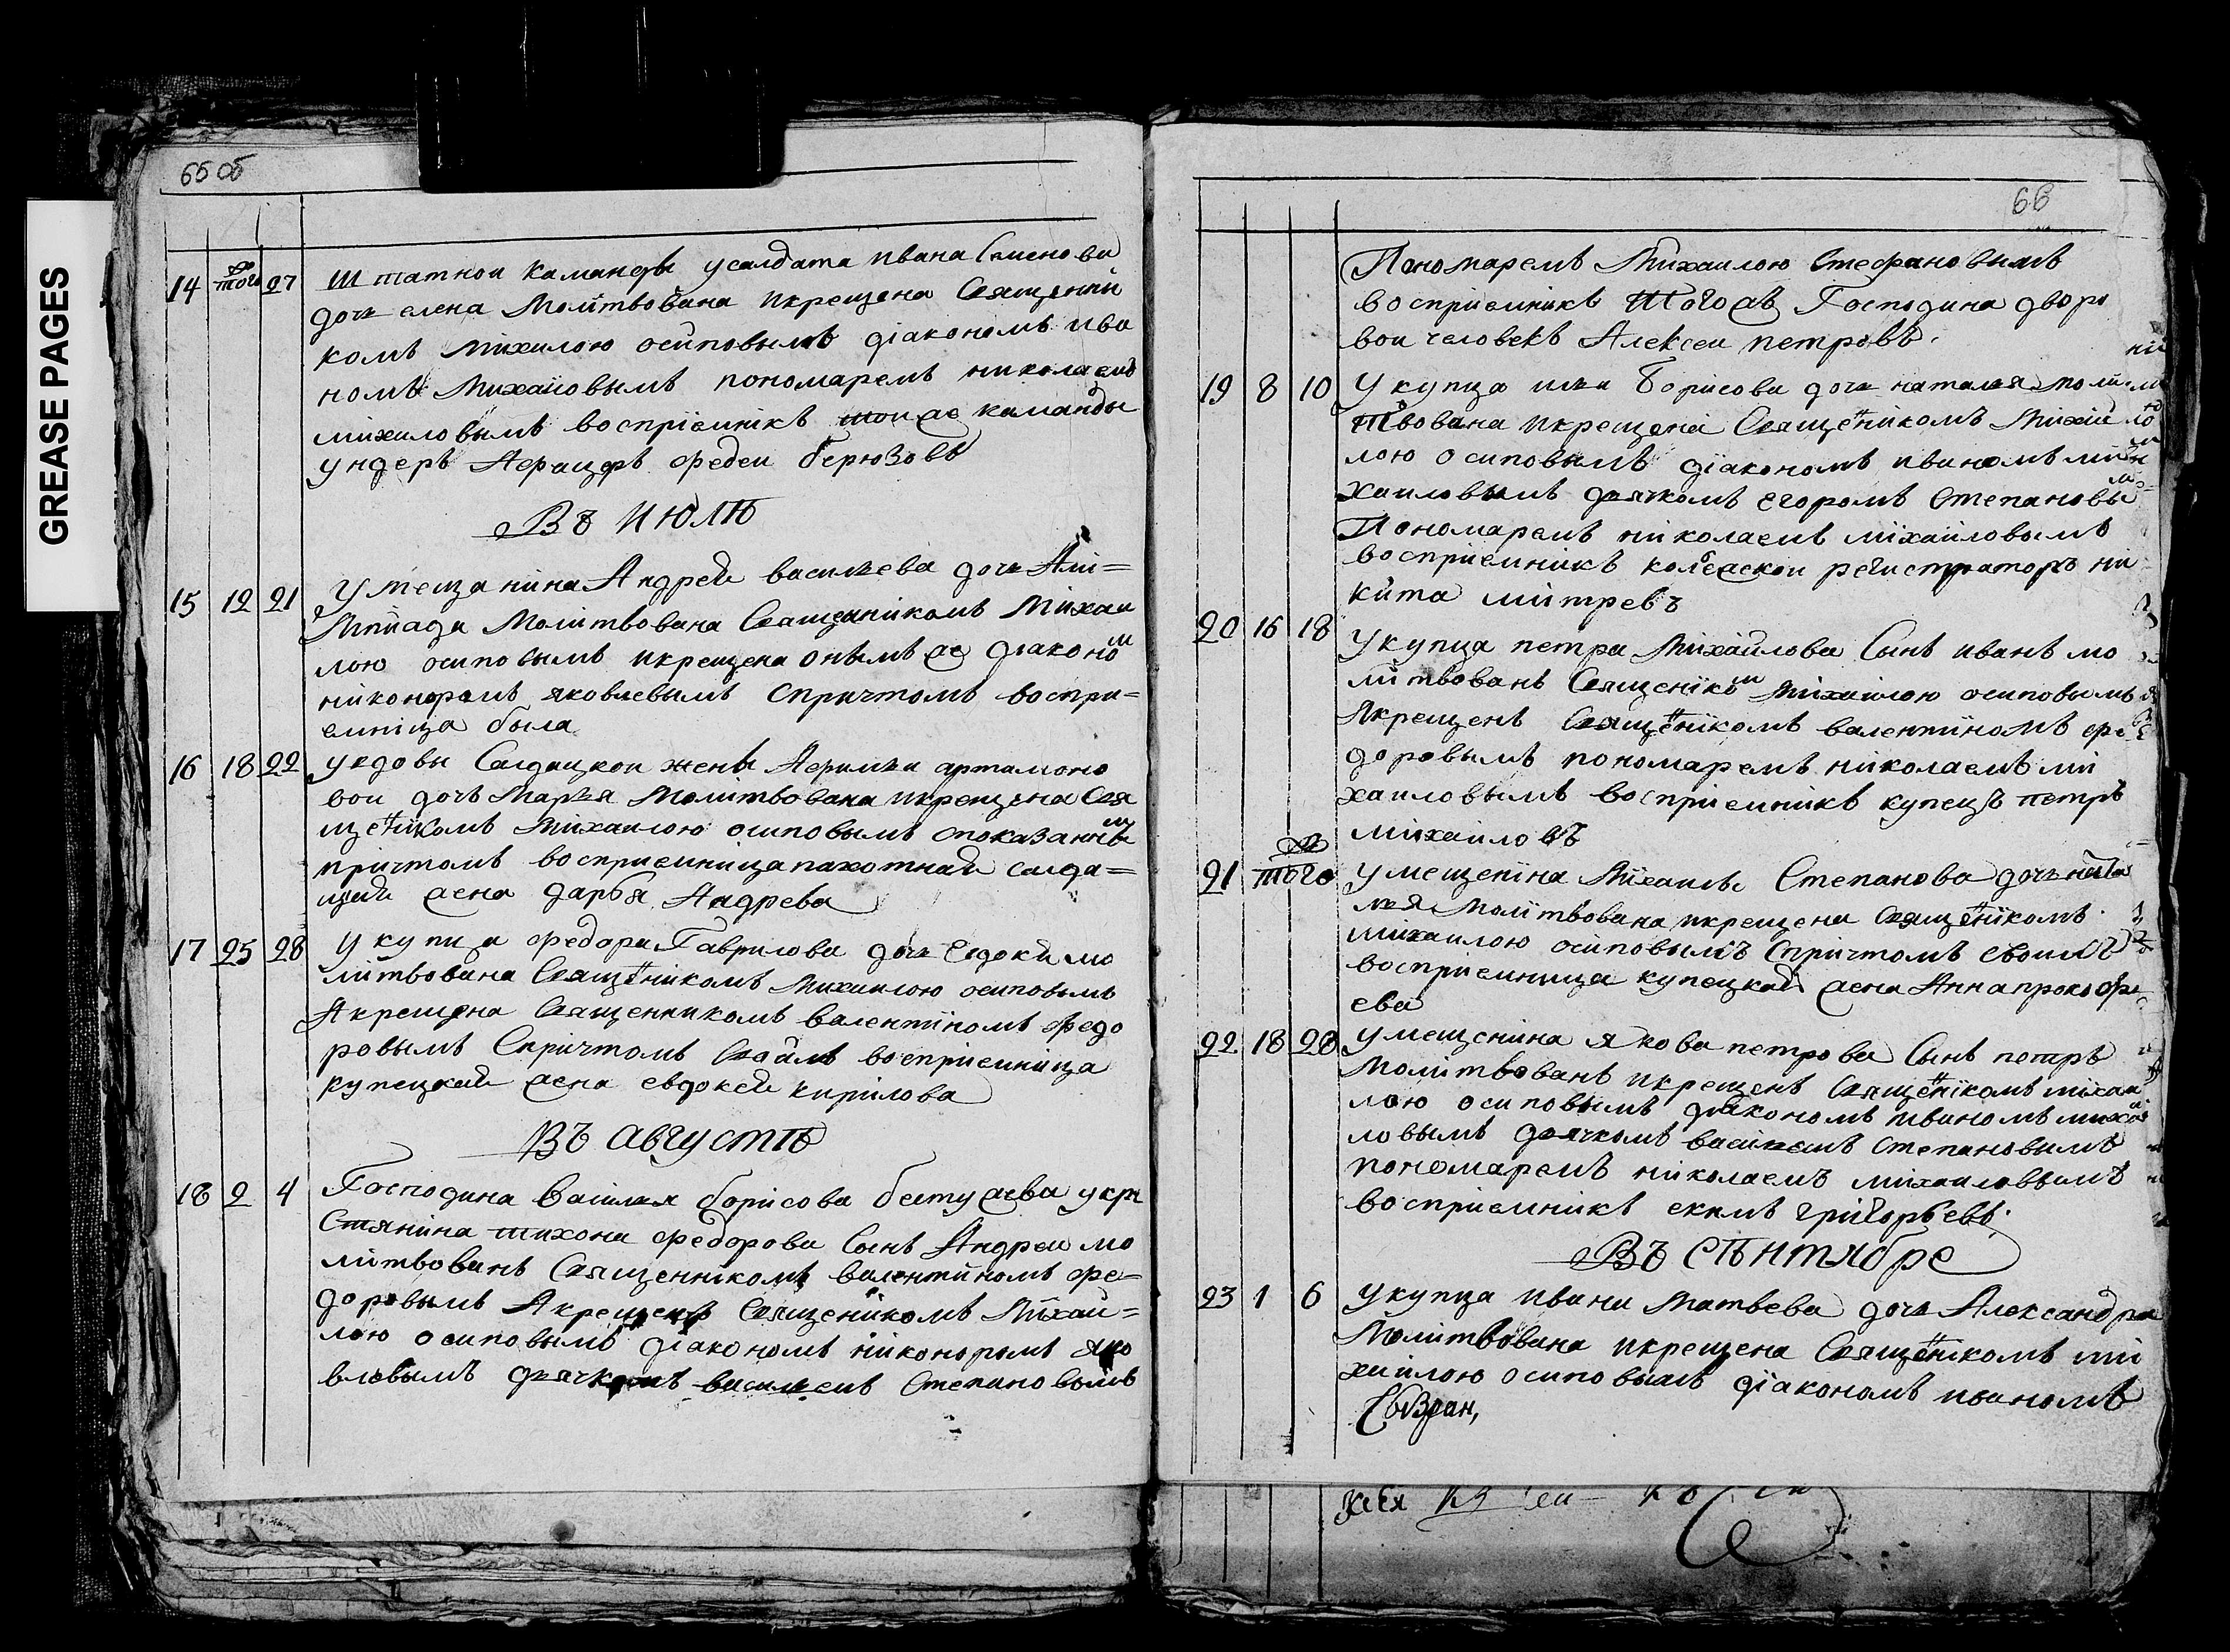 GREASE PAGES
65 об
14 того 27 Штатнои каманды усалдата ивана Семенова
дочь елена Молитвована икрещена Священни
комъ михаилою осиповымъ діакономъ ива
номъ Михаиловымъ пономаремъ николаемъ
михаиловымъ воспріемникъ тои же каманды
ундеръ афицеръ федеи
Въ июлѣ
15 12 21 У мещанина Андрея васильева дочь Али=
мпиада Молитвована Священникомъ Михаи
лою осиповымъ икрещена онымъ же діакономъ
никоноромъ яковлевымъ Спричтомъ воспри=
емница была
16 18 22 увдовы Салдацкои жены Афимьи артамоно
вои дочь Марья Молитвована икрещена Свя
щенникомъ Михаилою осиповымъ споказаннымъ
причтомъ восприемница пахотная салда=
цкая жена дарья Андрева
17 25 28 У купца федора Гаврилова дочь Евдокия мо
литвована Священникомъ Михаилою осиповымъ
Акрещена Священникомъ валентиномъ федо
ровымъ Спричтомъ Своимъ восприемница
купецкая жена евдокея кирилова
Въ августѣ
18 2 4 Господина василья борисова бестужева укре
Стянина тихона федорова Сынъ Андреи мо
литвованъ Священникомъ валентиномъ фе=
доровымъ Акрещенъ Священикомъ Михаи=
лою осиповымъ діакономъ никоноромъ яко
влевымъ дьячкомъ васильемъ Степановымъ
66
Пономаремъ Михаилою Стефановымъ
восприемникъ Тогожъ Господина дворо
вои человекъ Алексеи петровъ.
19 8 10 У купца ильи Борисова дочь наталья моли
Твована икрещена Священикомъ Михаи
лою осиповымъ діакономъ иваномъ ми
хаиловымъ дьячкомъ егоромъ Степановы
Пономаремъ николаемъ михаиловымъ
восприемникъ колежскои регистраторъ ни
кита митревъ
20 16 18 У купца петра Михаилова Сынъ иванъ мо
литвованъ Священикомъ Михаилою осиповымъ
Акрещенъ Священикомъ валентиномъ фе
доровымъ пономаремъ николаемъ ми
хаиловымъ восприемникъ купецъ петръ
михаиловъ
21 того У мещенина Михаилы Степанова дочь ната
лья Молитвована икрещена Священникомъ
михаилою осиповымъ Спричтомъ своимъ
восприемница купецкая жена Анна прокофе
ева
22 18 20 У мещенина якова петрова Сынъ петръ
Молитвованъ икрещенъ Священникомъ михаи
лою осиповымъ діакономъ иваномъ михаи
ловымъ дьячкомъ васильемъ Степановымъ
пономаремъ николаемъ михаиловымъ
восприемникъ екимъ григорьевъ.
Въ сѣнтябре
23 1 6 У купца ивана Матвеева дочь Александра
Молитвована икрещена Священникомъ ми
хаилою осиповымъ діакономъ иваномъ
Сызран,